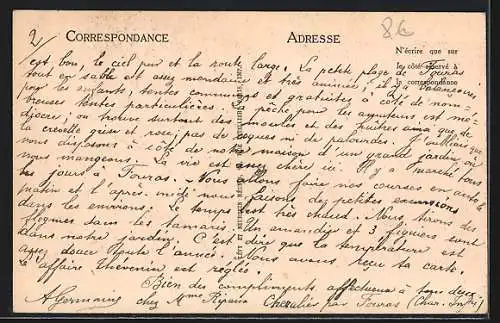 2/
CORRESPONDANCE
ADRESSE
8G
N'écrire que sur
le côté réservé à
la correspondance
est bon, le ciel pur et la route large. La petite plage de Fouras
tout en sable est assez mondaine et très animée; il y a balançoires
pour les enfants, tentes communes et gratuites à côté de nom-
breuses tentes particulières. La pêche pour les amateurs est mé-
diocre; on trouve surtout des moules et des huîtres ainsi que de
la crevette grise et rose; pas de coques ni de palourdes. J'oubliais que
nous disposons à côté de notre maison d'un grand jardin, où
nous mangeons. La vie est assez chère ici. Il y a marché tous
les jours à Fouras. Nous allons faire nos courses en auto le
matin et l'après-midi nous faisons de petites excursions
dans les environs. Le temps est très chaud. Nous tirons des
flegmes dans les tamaris. Un amandier et 3 figuiers sont
dans notre jardin. C'est dire que la température est
assez douce toute l'année. Nous avons reçu ta carte.
L'affaire Thévenin est réglée.
Bien des compliments affectueux à tous deux
A Germains chez Mme Ripain Chevalier par Fouras (Char. Infre)